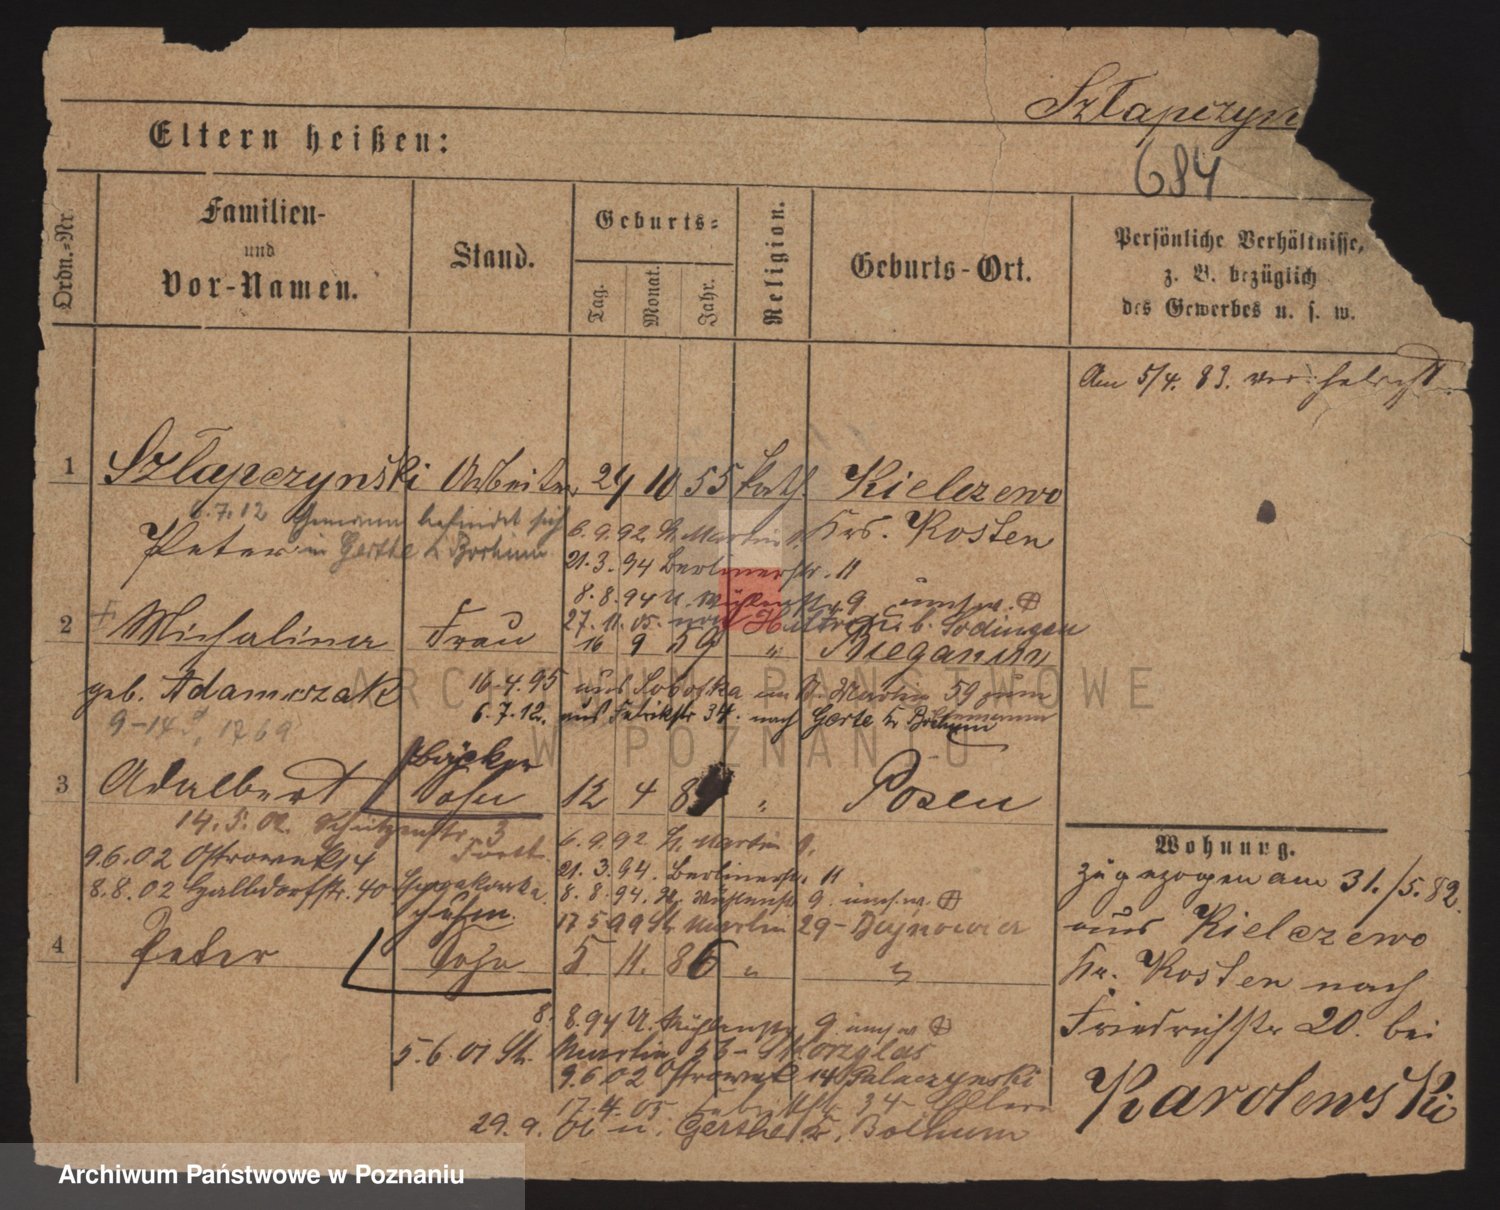 Szłapczyn
684
Eltern heißen:
Ordn.-Nr.
Familien-
und
Vor-Namen.
Stand.
Geburts-
Tag.
Monat.
Jahr.
Religion.
Geburts-Ort.
Persönliche Verhältnisse,
z. B. bezüglich
des Gewerbes u. s. w.
Am 5/4. 83. verheiratet
1 Szłapczynski Arbeiter 24 10 55 kath. Kielczewo
6.7.12 Ehemann befindet sich
Peter in Gerthe b. Bochum
Krs. Kosten
6.9.92 St. Martin
21.3.94 Berlinerstr. 11
8.8.94 U. Mühlenstr. 9 umsw.
27.11.05. nach b. Sodingen
2 Michalina Frau 16 9 59 "
geb. Adamczak
16.4.95 aus St. Martin 59
6.7.12. aus Fabrikstr 34. nach Gerte Kr Bochum
Ehemann
Bäcker
3 Adalbert Sohn 12 4 8 " Posen
14.5.02. Schützenstr. 3
9.6.02 Ostrowek 14
8.8.02 Halldorfstr. 40
6.9.92 St. Martin
21.3.94. Berlinerstr 11
8.8.94. U. Mühlenstr 9. umsw.
17 5 99 St. Martin 29 -
4 Peter Sohn 5 11. 86 " "
8.8.94 U. Mühlenstr 9. umsw
5.6.01 St. Martin 56 -
9.6 02 Ostrowek 14 Palaczynski
17.4.05 Fabrikstr 34 Eltern
29.9. n. Gerthe Kr. Bochum
Wohnung.
zugezogen am 31./5. 82.
aus Kielczewo
Kr. Kosten nach
Friedrichstr 20. bei
Karolewski
ARCHIWUM PAŃSTWOWE
W POZNANIU
Archiwum Państwowe w Poznaniu